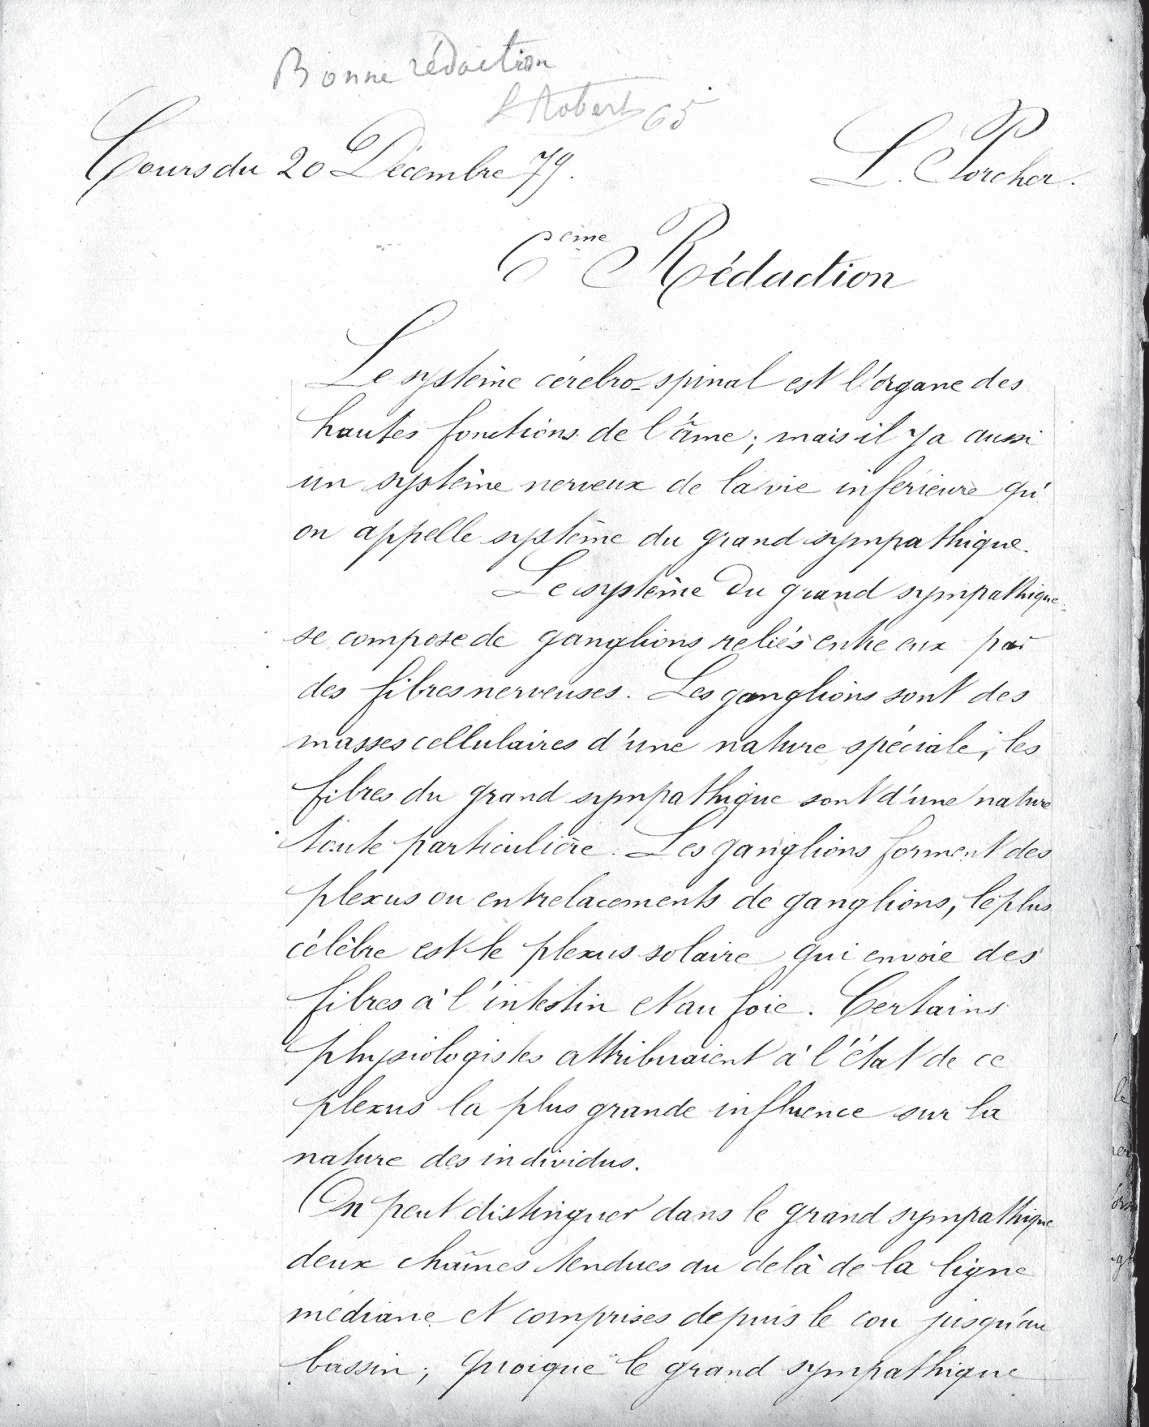 Bonne rédaction
Robert 65
Cours du 20 Décembre 79.
L. Porcher.
6ème Rédaction
Le système cérébro-spinal est l'organe des
hautes fonctions de l'âme; mais il y a aussi
un système nerveux de la vie inférieure qu'
on appelle système du grand sympathique.
Le système du grand sympathique
se compose de ganglions reliés entre eux par
des fibres nerveuses. Les ganglions sont des
masses cellulaires d'une nature spéciale; les
fibres du grand sympathique sont d'une nature
toute particulière. Les ganglions forment des
plexus ou entrelacements de ganglions, le plus
célèbre est le plexus solaire qui envoie des
fibres à l'intestin et au foie. Certains
physiologistes attribuaient à l'état de ce
plexus la plus grande influence sur la
nature des individus.
On peut distinguer dans le grand sympathique
deux chaînes tendues au delà de la ligne
médiane et comprises depuis le cou jusqu'au
bassin; quoique le grand sympathique